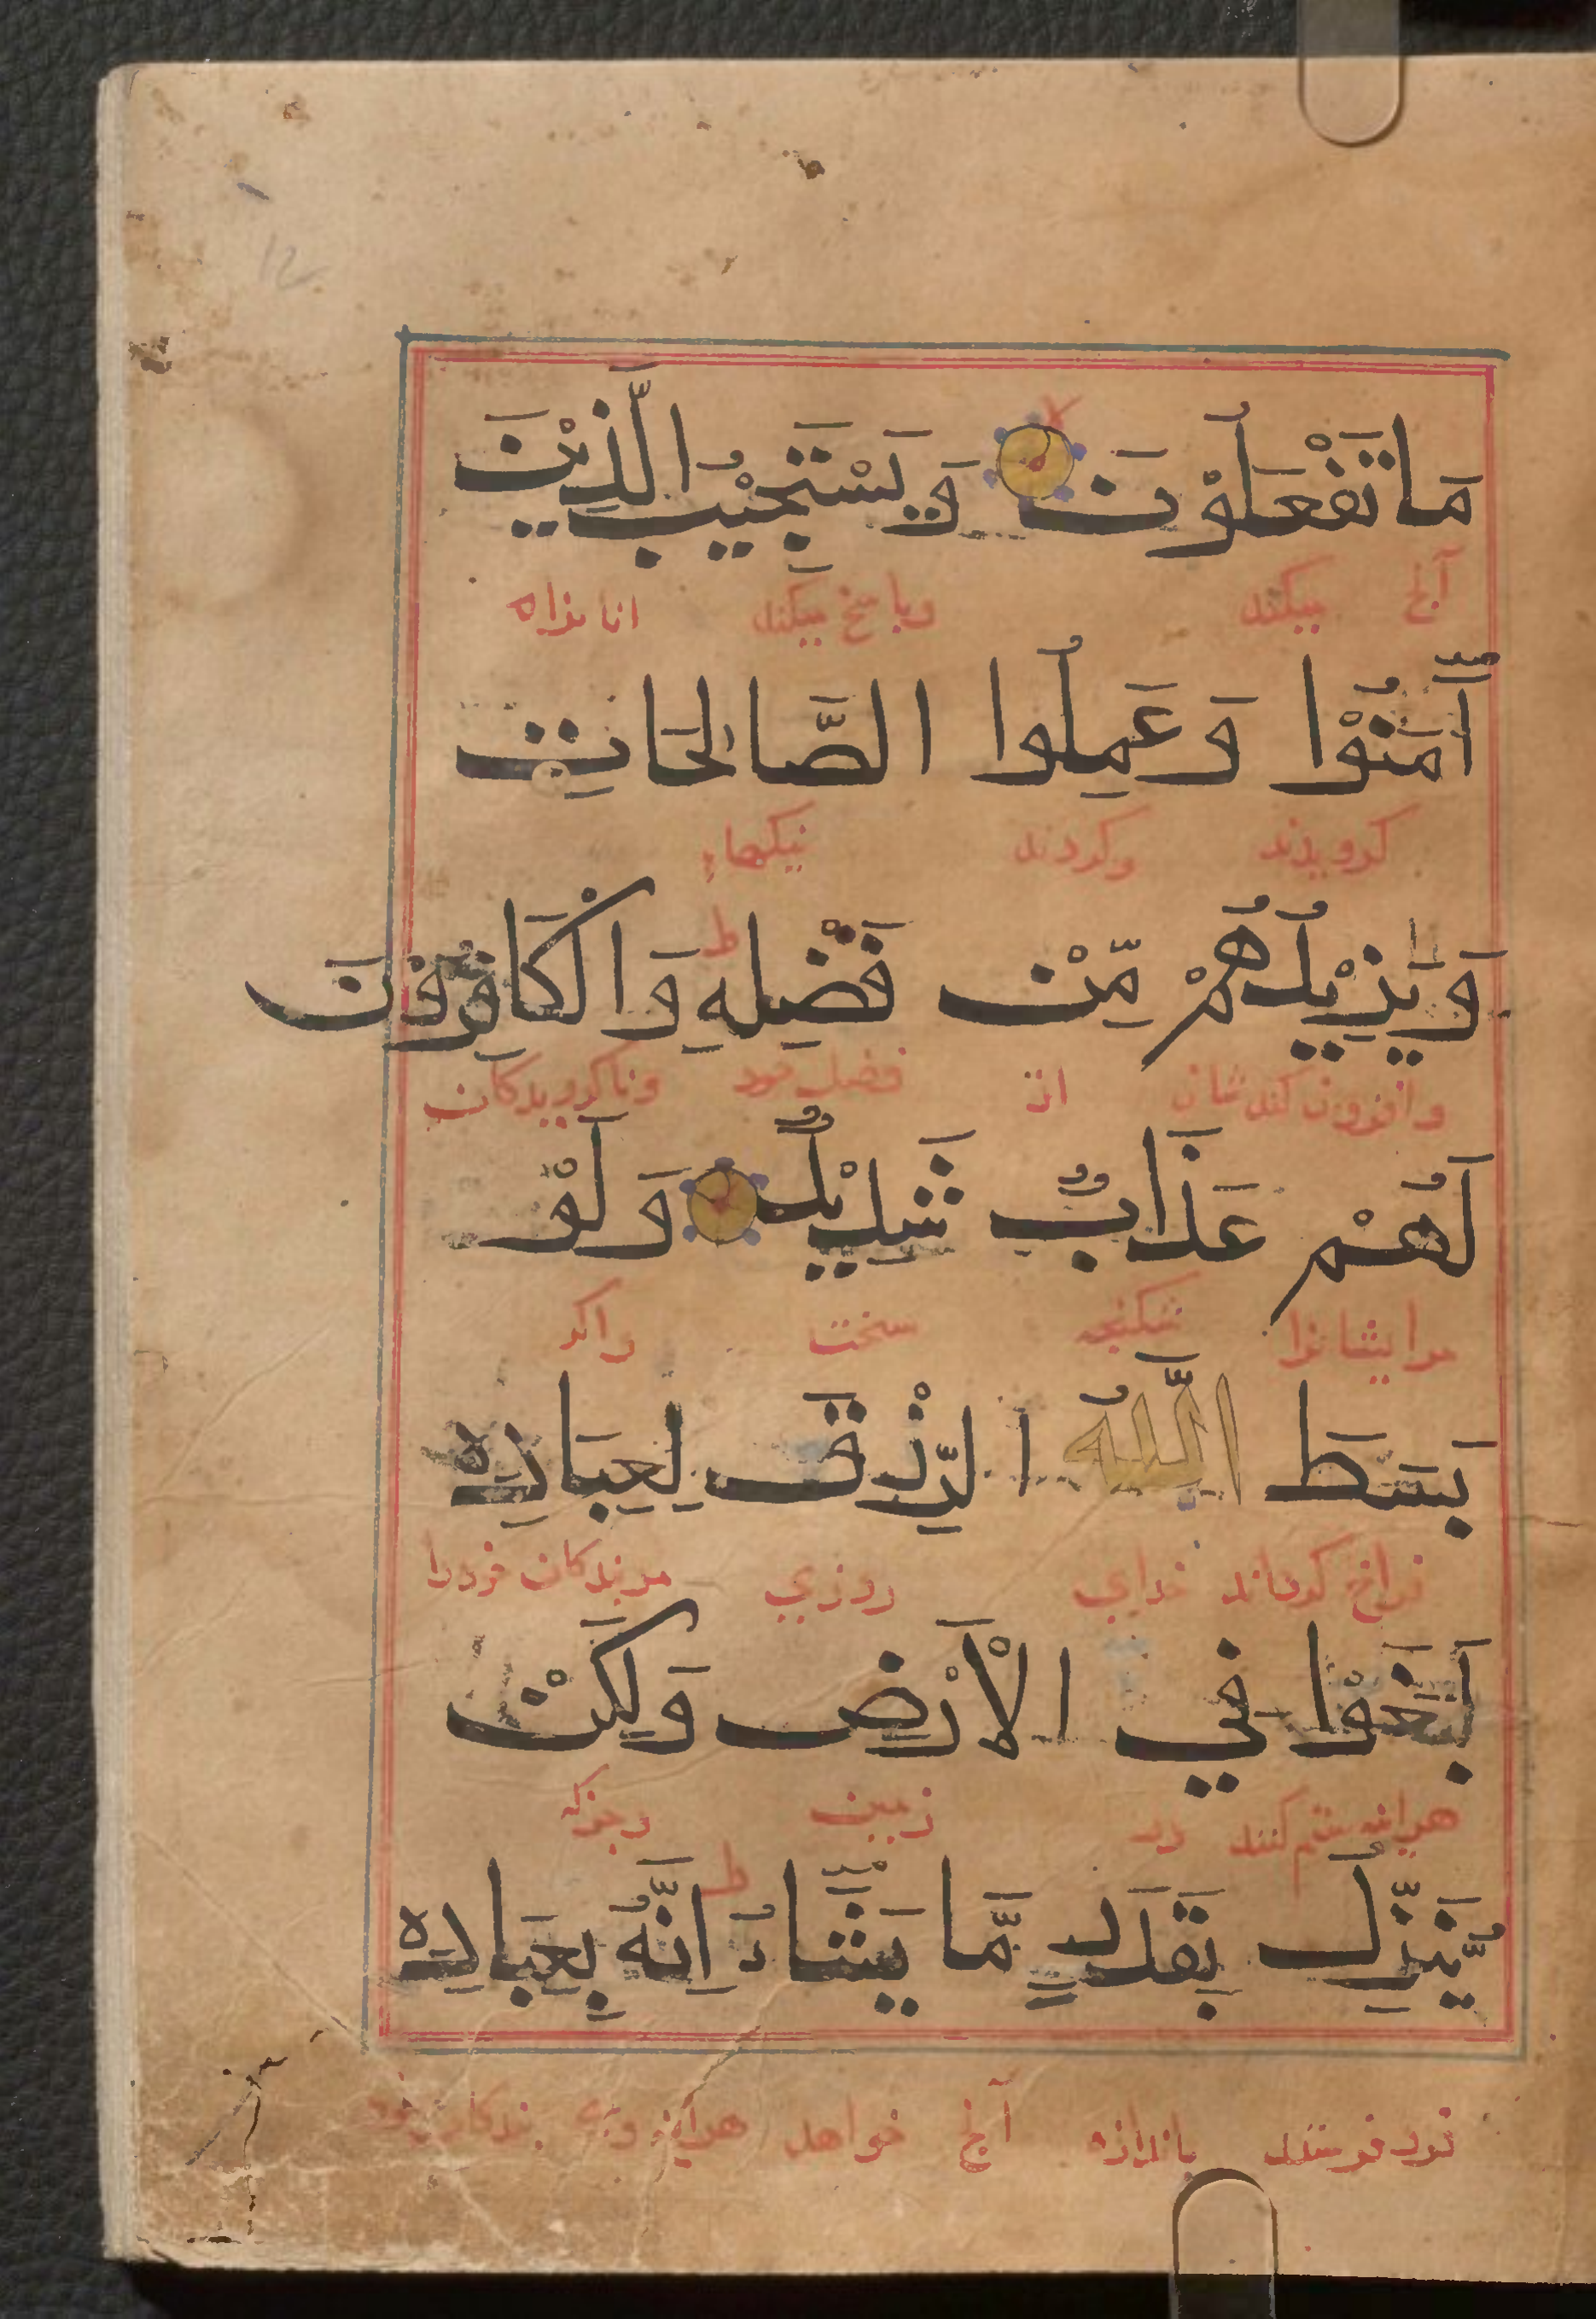 مَا تَفْعَلُوْنَ لا وَيَسْتَجِيْبُ الَّذِيْنَ
آنچ میکنند وپاسخ میکند انانراه
آمَنُوْا وَعَمِلُوا الصَّالِحَاتِ
کرویدند وکردند نیکیها
وَيَزِيْدُهُمْ مِّنْ فَضْلِهِ ط وَالْكَافِرُوْنَ
وافزون کندشان از فضل خود وناکرویدکان
لَهُمْ عَذَابٌ شَدِيْدٌ وَلَوْ
مرایشانرا شکنجه سخت واکر
بَسَطَ اللّٰهُ الرِّزْقَ لِعِبَادِهِ
فراخ کرداند خدای روزی مربندکان خودرا
لَبَغَوْا فِي الْاَرْضِ وَلَكِنْ
هراینه ستم کنند در زمین
يُّنَزِّلُ بِقَدَرٍ مَّا يَشَاءُ ط اِنَّهُ بِعِبَادِهِ
فرو فرستد باندازه آنچ خواهد هراینه وی به بندکان خود